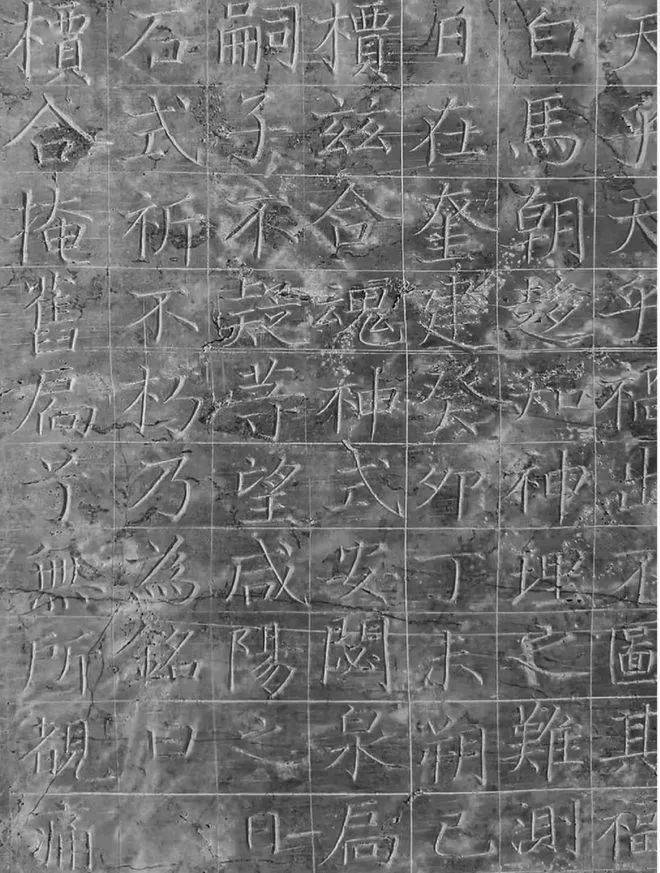 天乎天乎福出不圖其福
白馬朝趍知神理之難測
日在奎建癸卯丁未朔己
櫝茲合魂神式安閟泉扃
嗣子不疑等望咸陽之日
石式祈不朽乃為銘曰
櫝合掩舊扃兮無所覩痛